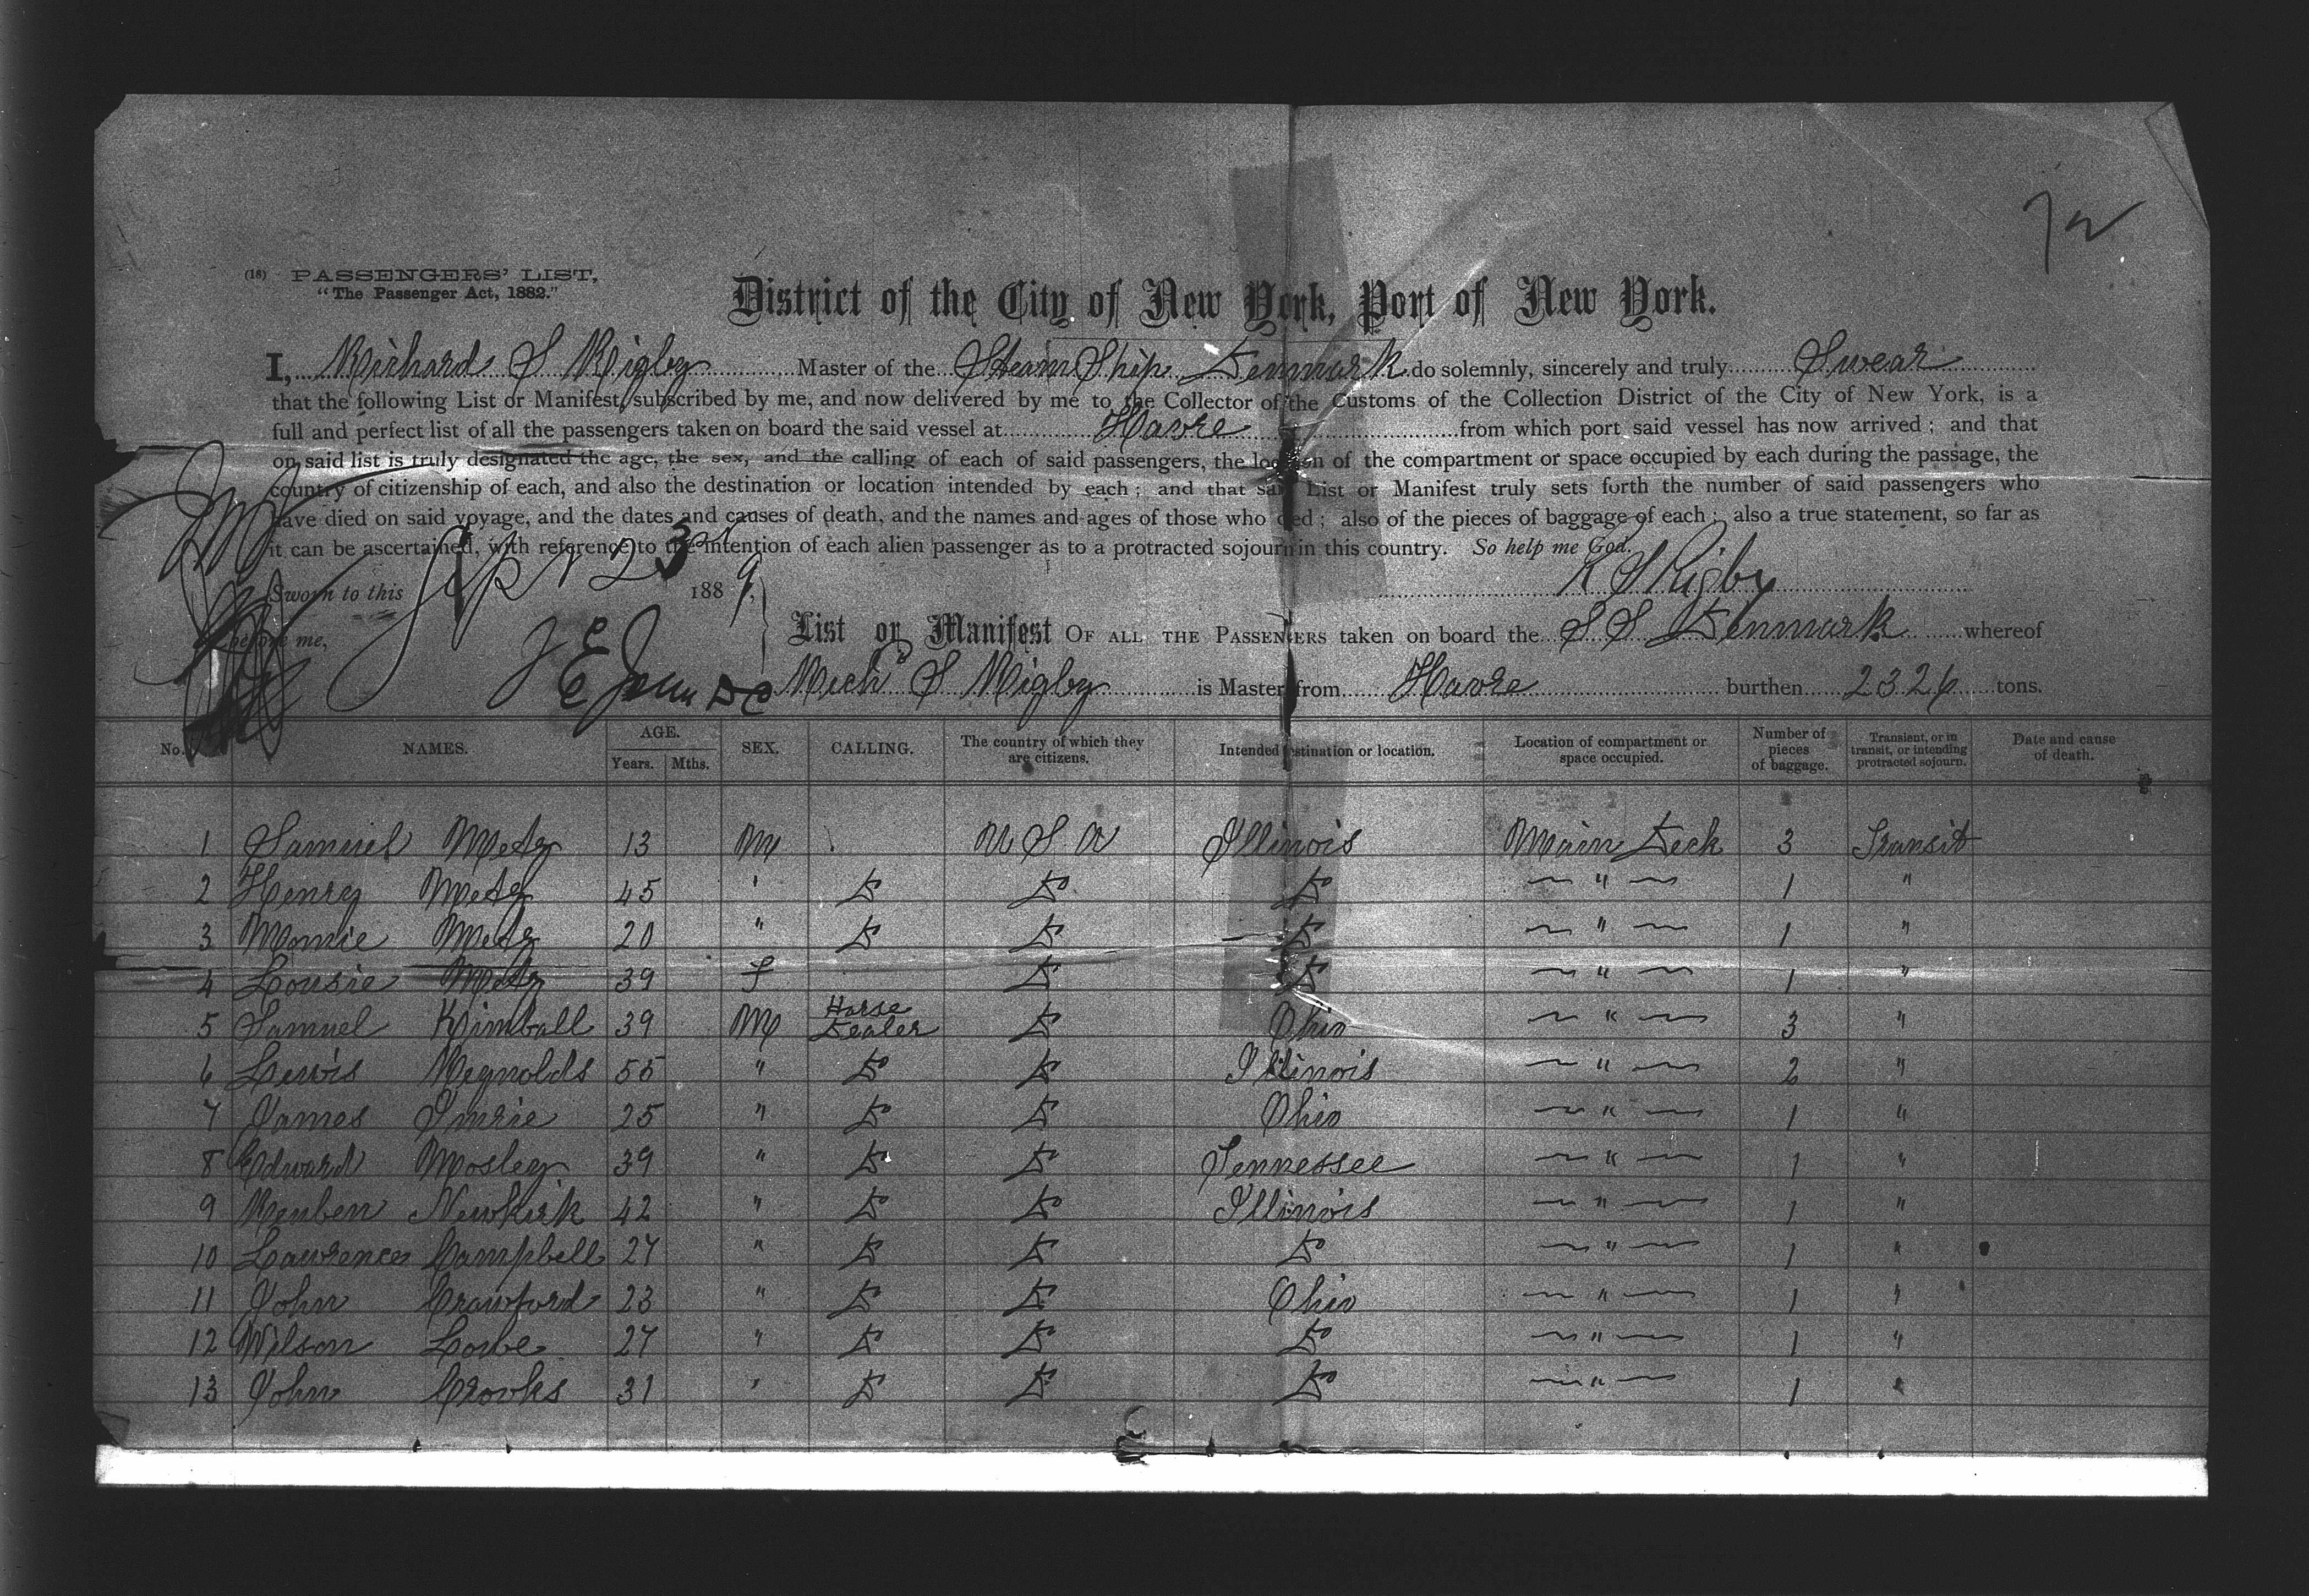 72
(18) PASSENGERS' LIST,
"The Passenger Act, 1882."
District of the City of New York, Port of New York.
I, Richard S Rigby Master of the Steam Ship Denmark do solemnly, sincerely and truly Swear
that the following List or Manifest, subscribed by me, and now delivered by me to the Collector of the Customs of the Collection District of the City of New York, is a
full and perfect list of all the passengers taken on board the said vessel at Havre from which port said vessel has now arrived; and that
on said list is truly designated the age, the sex, and the calling of each of said passengers, the location of the compartment or space occupied by each during the passage, the
country of citizenship of each, and also the destination or location intended by each; and that said List or Manifest truly sets forth the number of said passengers who
have died on said voyage, and the dates and causes of death, and the names and ages of those who died; also of the pieces of baggage of each; also a true statement, so far as
it can be ascertained, with reference to the intention of each alien passenger as to a protracted sojourn in this country. So help me God.
Sworn to this Sept 23rd 1889, R S Rigby
before me,
List or Manifest OF ALL THE PASSENGERS taken on board the S S Denmark whereof
Richd S Rigby is Master from Havre burthen 2326 tons.
No. NAMES. AGE. Years. Mths. SEX. CALLING. The country of which they are citizens. Intended destination or location. Location of compartment or space occupied. Number of pieces of baggage. Transient, or in transit, or intending protracted sojourn. Date and cause of death.
1 Samuel Metz 13 M U S A Illinois Main Deck 3 Transit
2 Henry Metz 45 " Do Do Do " 1 "
3 Monie Metz 20 " Do Do Do " 1 "
4 Lousie Metz 39 f Do Do " 1 "
5 Samuel Kimball 39 M Horse Dealer Do Ohio " 3 "
6 Lewis Reynolds 55 " Do Do Illinois " 2 "
7 James Imrie 25 " Do Do Ohio " 1 "
8 Edward Mosley 39 " Do Do Tennessee " 1 "
9 Reuben Newkirk 42 " Do Do Illinois " 1 "
10 Lawrence Campbell 27 " Do Do Do " 1 "
11 John Crawford 23 " Do Do Ohio " 1 "
12 Wilson Lowe 27 " Do Do Do " 1 "
13 John Crooks 31 " Do Do Do " 1 "